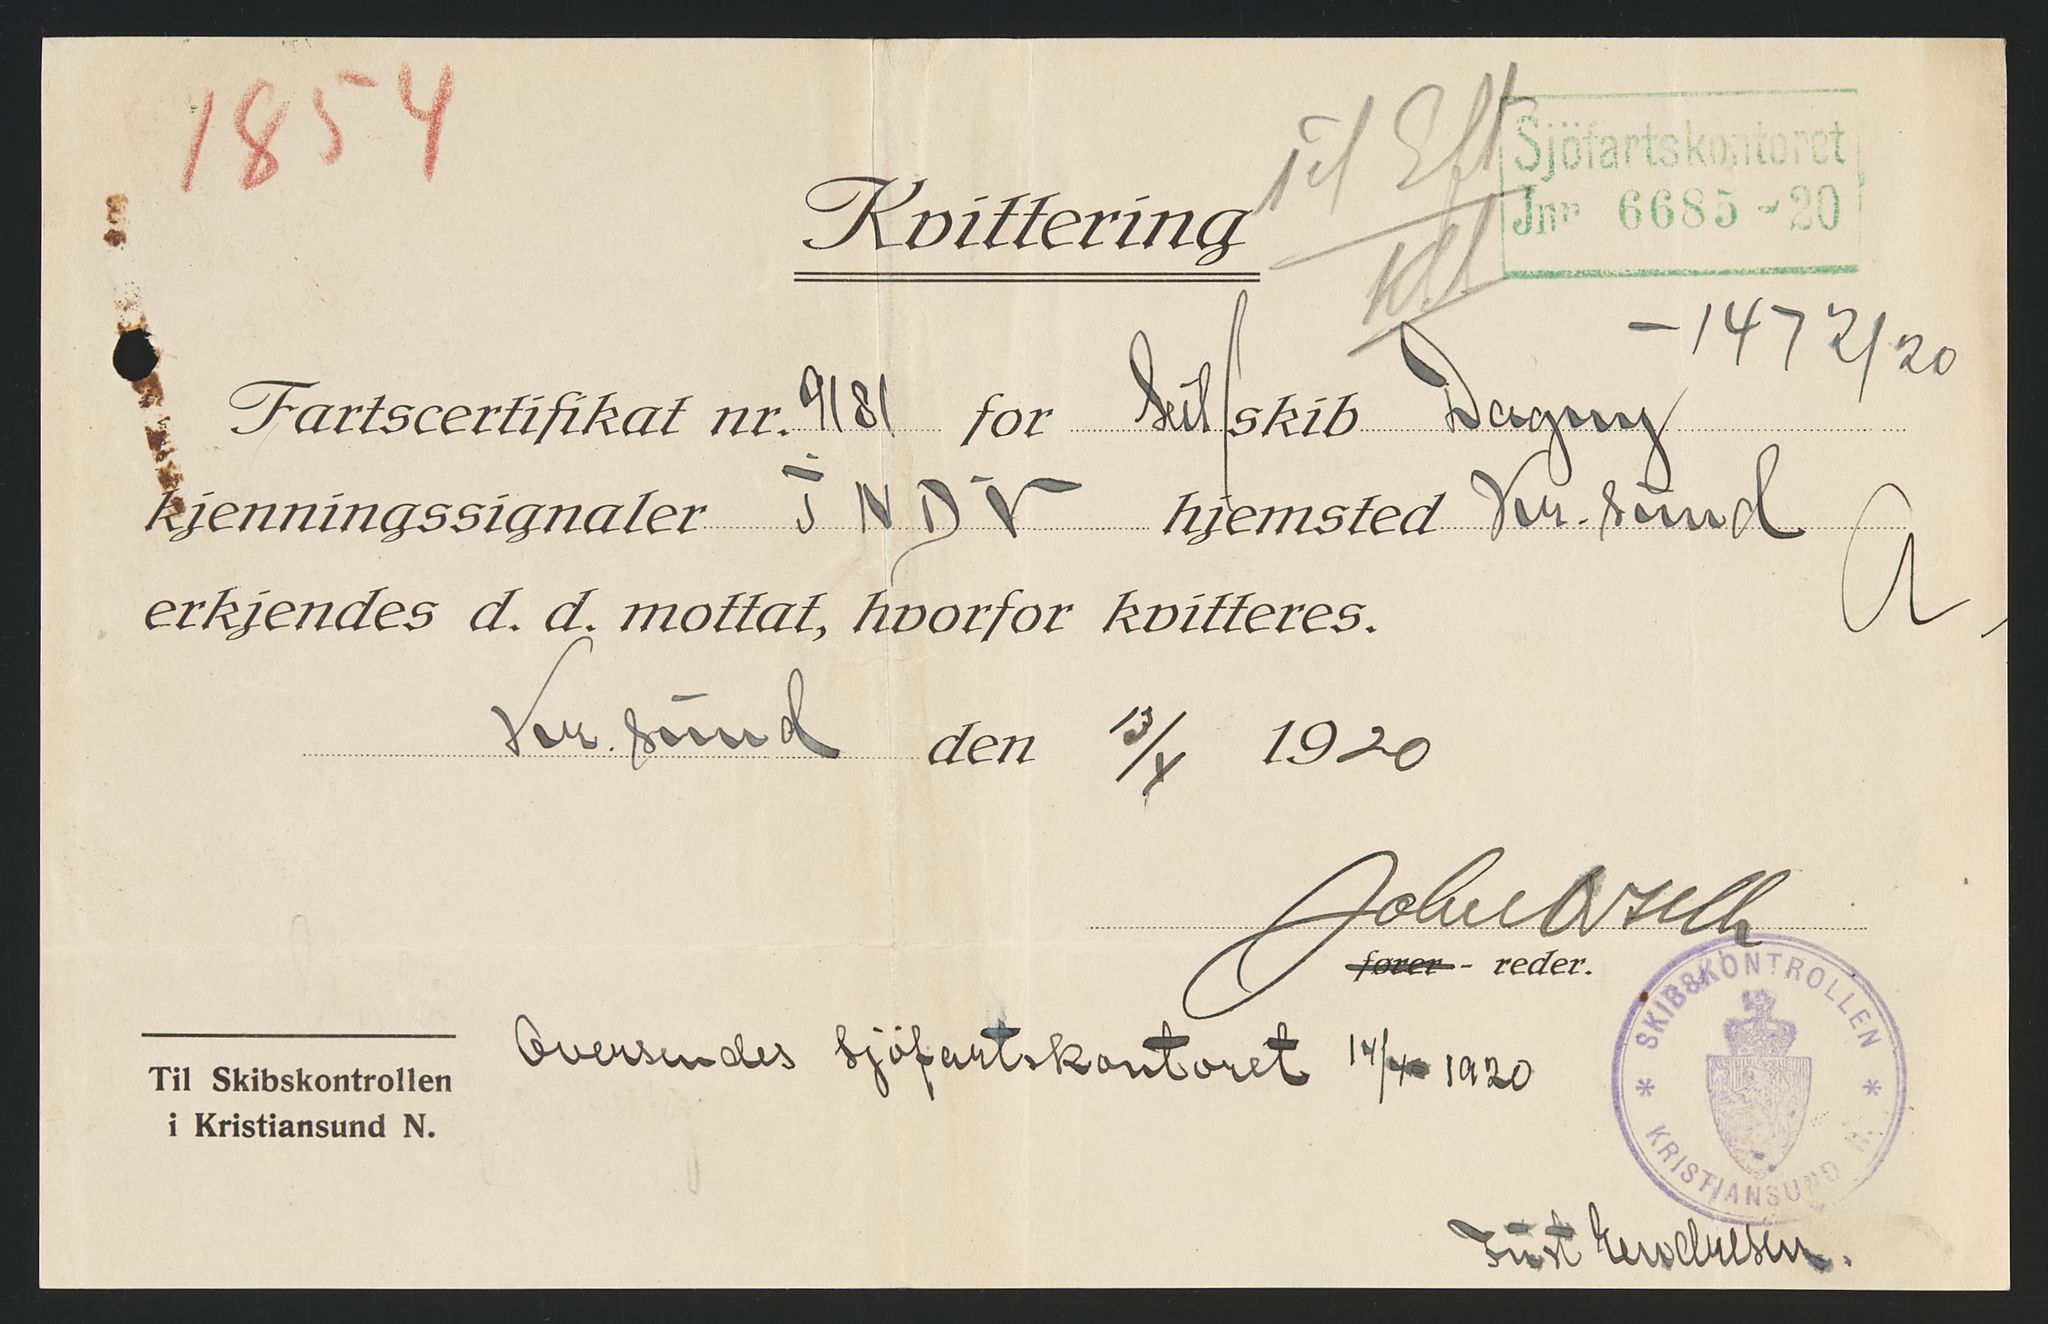 1854
Til Eft
Sjöfartskontoret
Jnr 6685-20
Kvittering
-1472/20
Fartscertifikat nr. 9181 for Seil/skib Dagny
kjenningssignaler hjemsted Kr. sund
erkjendes d. d. mottat, hvorfor kvitteres.
Kr. sund den 13/X 1920
fører - reder.
SKIBSKONTROLLEN
KRISTIANSUND N.
Oversendes Sjöfartskontoret 1920
Til Skibskontrollen
i Kristiansund N.